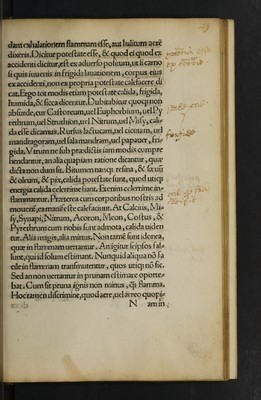 dam exhalationem flammam esse, aut halitum aerē
dixeris. Dicitur potestate esse, & quod ei quod ex
accidenti dicitur, est ex aduerso positum, ut si carno
si quis iuuenis in frigida lauationem, corpus eius
ex accidenti, non ex propria potestate calefacere di
cat. Ergo tot modis etiam potestate calida, frigida,
humida, & sicca dicentur. Dubitabitur quoq; non
absurde, cur Castoreum, uel Euphorbium, uel Py
rethrum, uel Struthion, uel Nitrum, uel Misy, cali-
da esse dicamus. Rursus lactucam, uel cicutam, uel
mandragoram, uel salamandram, uel papauer, fri-
gida. Vtrum ne sub prædictis iam modis compre
hendantur, an alia quapiam ratione dicantur, quæ
dicta non dum sit. Bitumen nanq; resina, & seuū
& oleum, & pix, calida potestate sunt, quod utiq;
energia calida celerrime fiant. Etenim celerrime in-
flammantur. Præterea cum corporibus nostris ad
mouent, ea manifeste calefaciunt. At Calcitis, Mi-
sy, Synapi, Nitrum, Acoron, Meon, Costus, &
Pyrethrum cum nobis sunt admota, calida uiden
tur. Alia magis, alia minus. Non tamē sunt idonea,
quæ in flammam uertantur. An igitur seipsos fal-
lunt, qui id solum estimant. Nunquid aliqua nō fa
cile in flammam transmutentur, quos utiq; nō sic.
Sed an non uertantur in prunam estimare oporte-
bat. Cum sit pruna ignis non minus, q̃ flamma.
Hoc tamen discrimine, quod aere, uel aereo quopi-
N am in